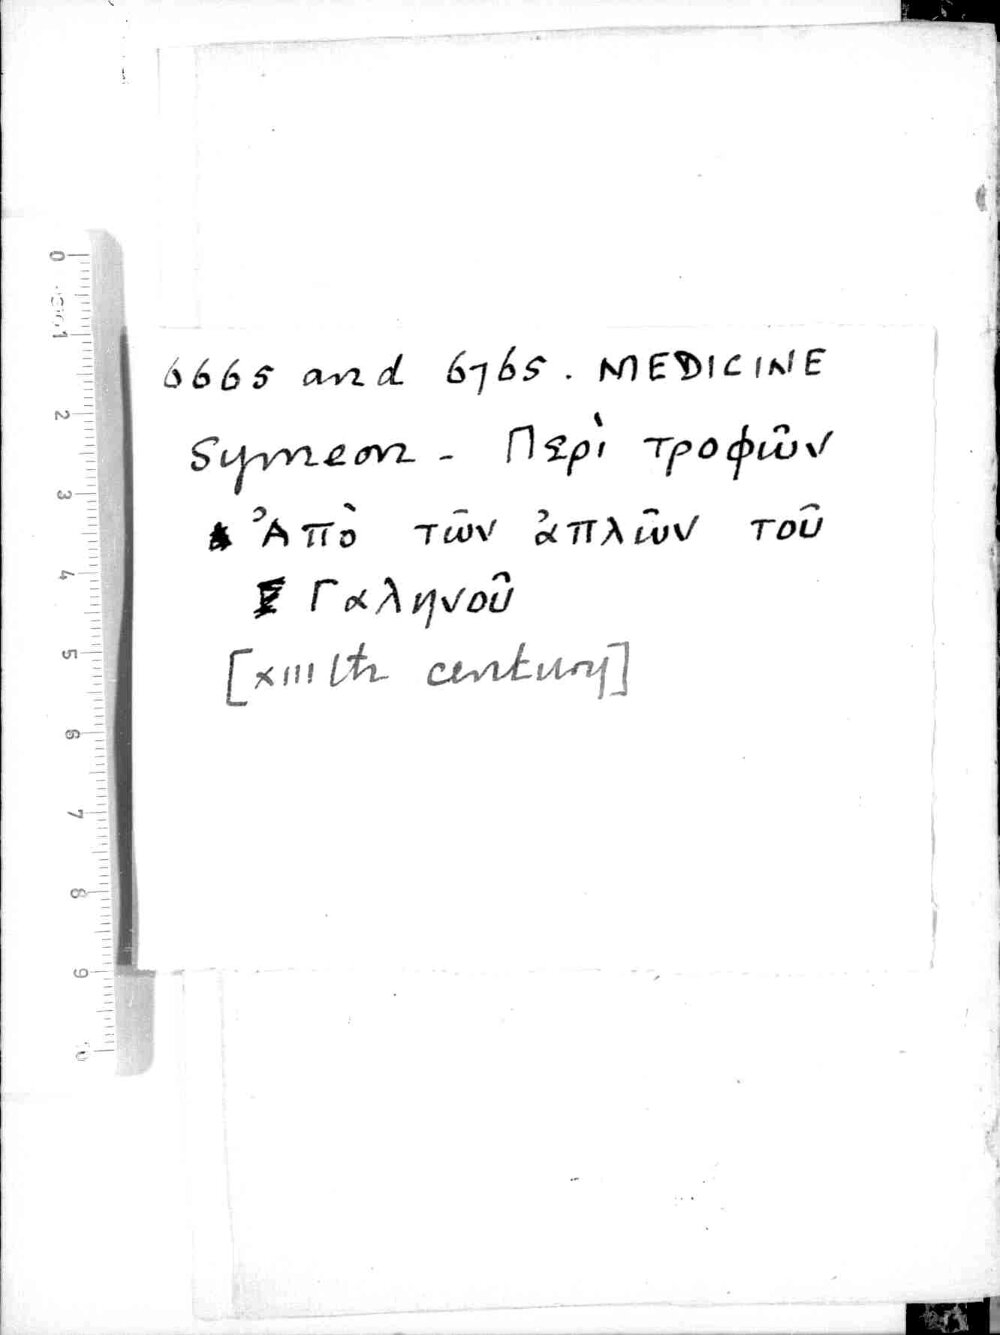 6665 and 6765. MEDICINE
Symeon - Περὶ τροφῶν
Ἀπὸ τῶν ἁπλῶν τοῦ
Γαληνοῦ
[XIIIth century]
0
1
2
3
4
5
6
7
8
9
10